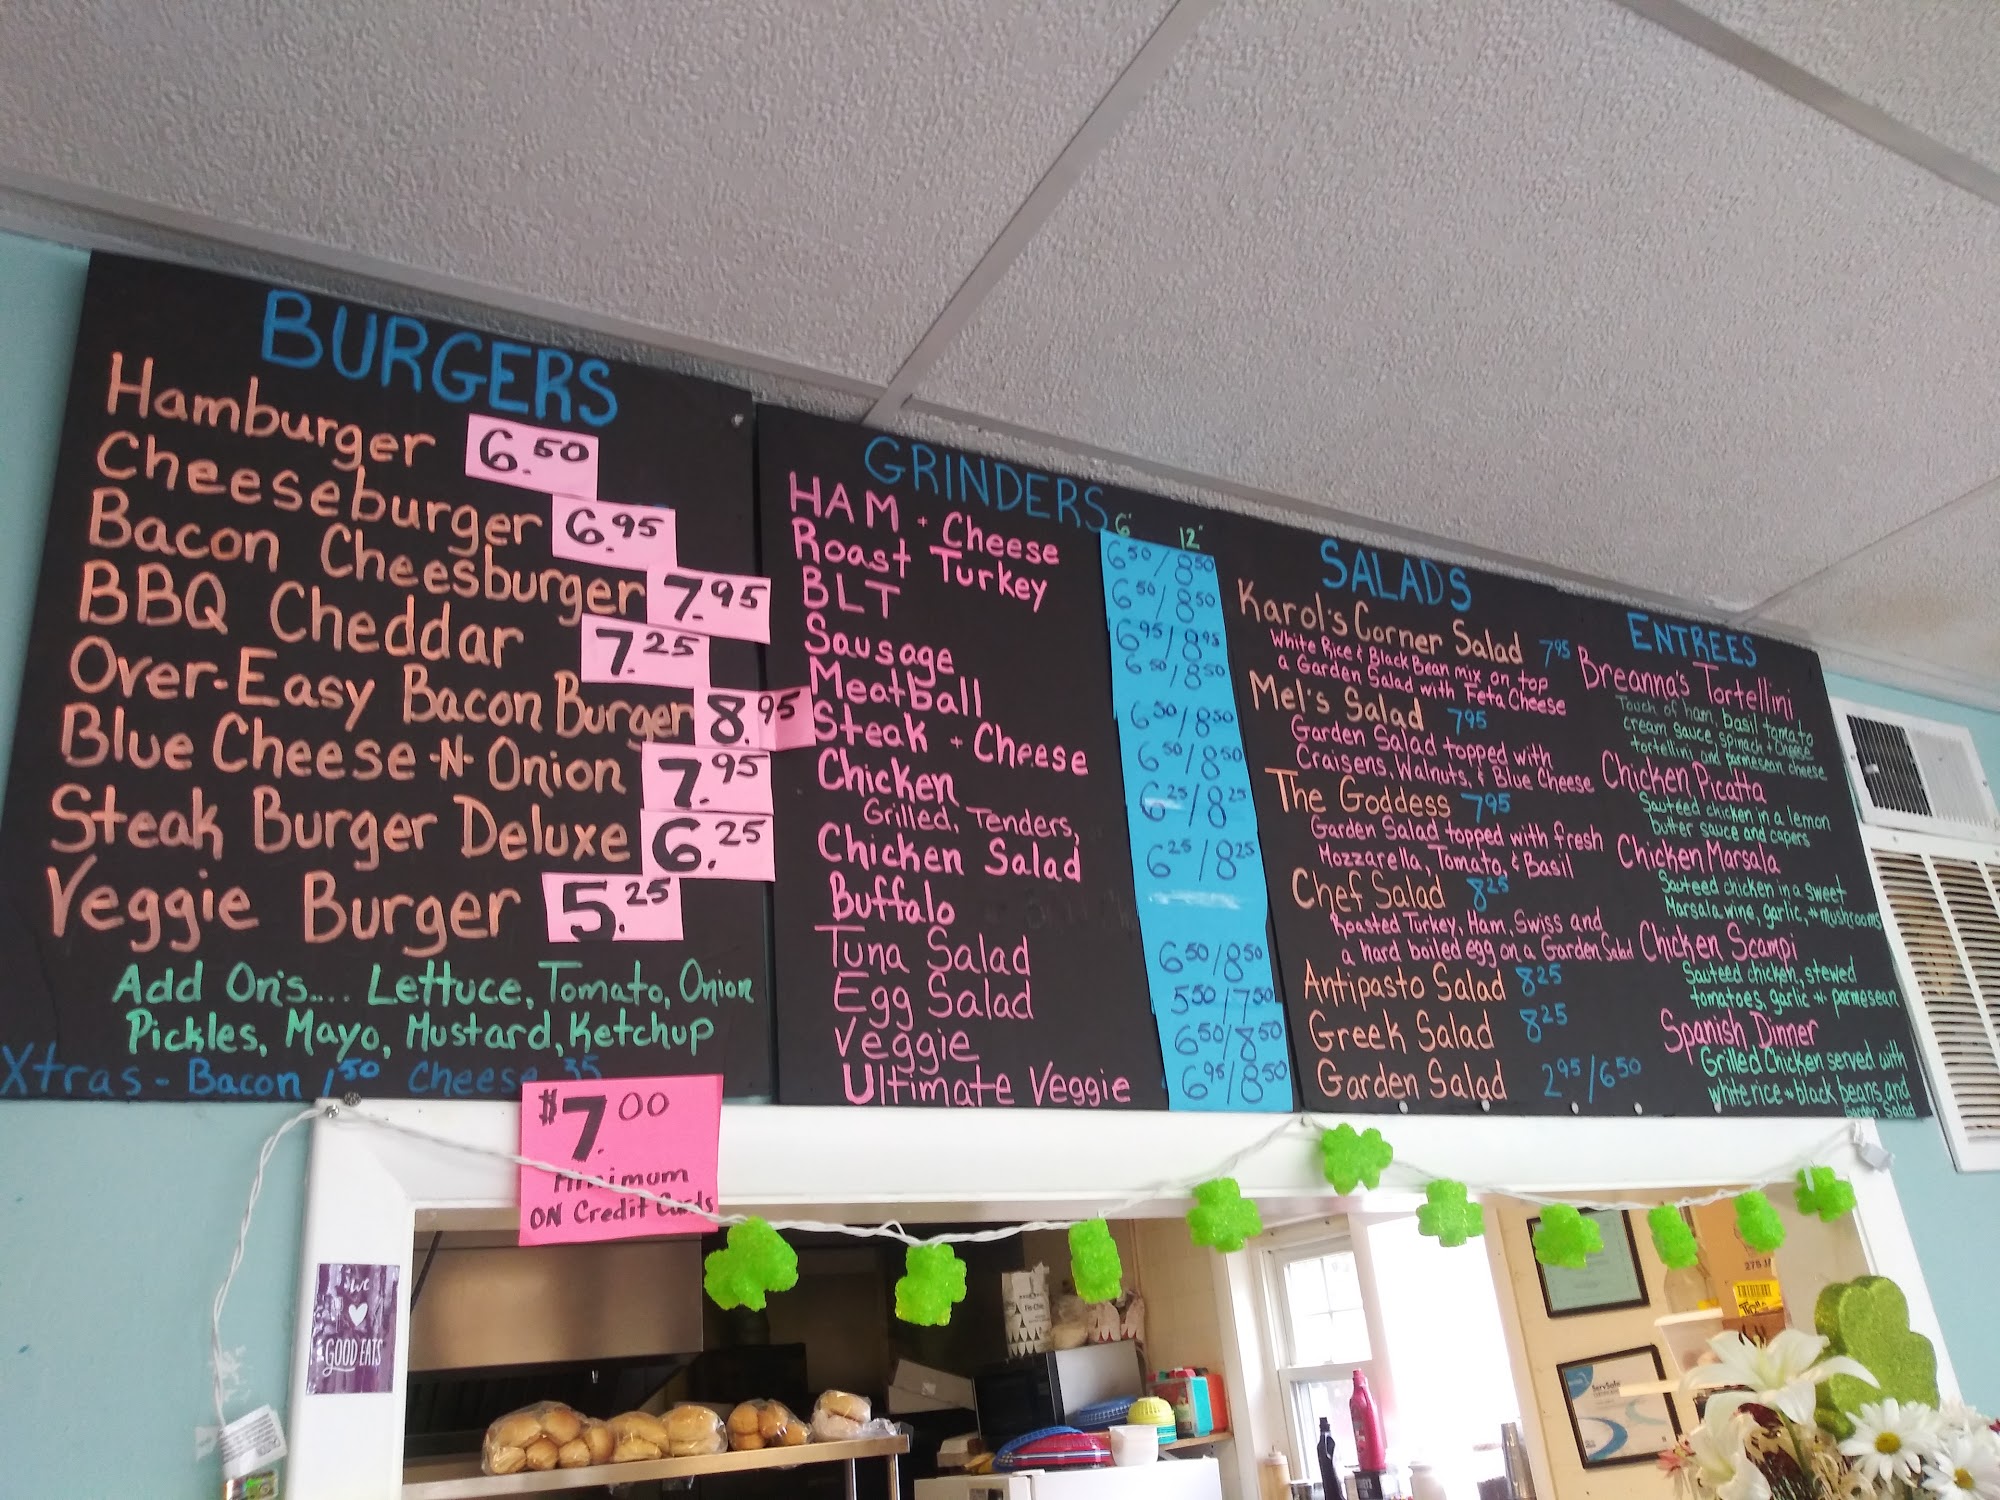 BURGERS
Hamburger 6.50
Cheeseburger 6.95
Bacon Cheesburger 7.95
BBQ Cheddar 7.25
Over-Easy Bacon Burger 8.95
Blue Cheese -N- Onion 7.95
Steak Burger Deluxe 6.25
Veggie Burger 5.25
Add On's.... Lettuce, Tomato, Onion
Pickles, Mayo, Mustard, Ketchup
Xtras - Bacon 1.50 Cheese .35
$7.00
Minimum
ON Credit Cards
GRINDERS 6" 12"
HAM + Cheese 6.50/8.50
Roast Turkey 6.50/8.50
BLT 6.95/8.95
Sausage 6.50/8.50
Meatball 6.50/8.50
Steak + Cheese 6.50/8.50
Chicken 6.25/8.25
Grilled, Tenders,
Chicken Salad 6.25/8.25
Buffalo
Tuna Salad 6.50/8.50
Egg Salad 5.50/7.50
Veggie 6.50/8.50
Ultimate Veggie 6.95/8.50
SALADS
Karol's Corner Salad 7.95
White Rice & Black Bean mix on top
a Garden Salad with Feta Cheese
Mel's Salad 7.95
Garden Salad topped with
Craisens, Walnuts, & Blue Cheese
The Goddess 7.95
Garden Salad topped with fresh
Mozzarella, Tomato, & Basil
Chef Salad 8.25
Roasted Turkey, Ham, Swiss and
a hard boiled egg on a Garden Salad
Antipasto Salad 8.25
Greek Salad 8.25
Garden Salad 2.95/6.50
ENTREES
Breanna's Tortellini
Touch of ham, basil tomato
cream sauce spinach + cheese
tortellini and parmesean cheese
Chicken Picatta
Sautéed chicken in a lemon
butter sauce and capers
Chicken Marsala
Sautéed chicken in a sweet
Marsala wine, garlic, + mushrooms
Chicken Scampi
Sautéed chicken, stewed
tomatoes, garlic -n- parmesean
Spanish Dinner
Grilled Chicken served with
white rice + black beans and
Garden Salad
we
GOOD EATS
ServSafe
275